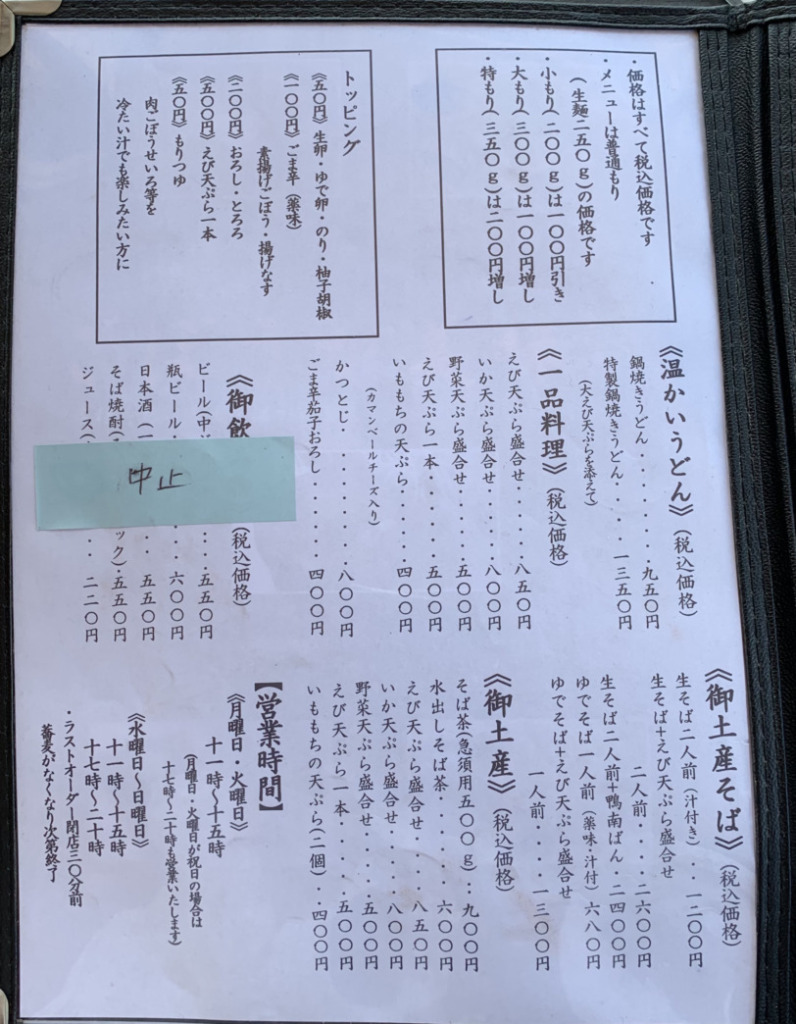 ・価格はすべて税込価格です
・メニューは普通もり
(生麺二五〇g)の価格です
・小もり(二〇〇g)は一〇〇円引き
・大もり(三〇〇g)は一〇〇円増し
・特もり(三五〇g)は二〇〇円増し
トッピング
《五〇円》生卵・ゆで卵・のり・柚子胡椒
《一〇〇円》ごま辛(薬味)
素揚げごぼう・揚げなす
《二〇〇円》おろし・とろろ
《五〇〇円》えび天ぷら一本
《五〇円》もりつゆ
肉ごぼうせいろ等を
冷たい汁でも楽しみたい方に
《温かいうどん》(税込価格)
鍋焼きうどん・・・・・・・九五〇円
特製鍋焼きうどん・・・・一三五〇円
(大えび天ぷらを添えて)
《一品料理》(税込価格)
えび天ぷら盛合せ・・・・・八五〇円
いか天ぷら盛合せ・・・・・八〇〇円
野菜天ぷら盛合せ・・・・・五〇〇円
えび天ぷら一本・・・・・・五〇〇円
いももちの天ぷら・・・・・四〇〇円
(カマンベールチーズ入り)
かつとじ・・・・・・・・・八〇〇円
ごま辛茄子おろし・・・・・四〇〇円
《御飲
(税込価格)
ビール(中
・・・五五〇円
瓶ビール・
・・・六〇〇円
日本酒(一
・・・五五〇円
そば焼酎(
ック)・五五〇円
ジュース(
・・・二二〇円
中止
《御土産そば》(税込価格)
生そば二人前(汁付き)・・一二〇〇円
生そば+えび天ぷら盛合せ
二人前・・・・二六〇〇円
生そば二人前+鴨南ばん・二四〇〇円
ゆでそば一人前(薬味・汁付)六八〇円
ゆでそば+えび天ぷら盛合せ
一人前・・・・一三〇〇円
《御土産》(税込価格)
そば茶(急須用五〇〇g)・・九〇〇円
水出しそば茶・・・・・・・六〇〇円
えび天ぷら盛合せ・・・・・八五〇円
いか天ぷら盛合せ・・・・・八〇〇円
野菜天ぷら盛合せ・・・・・五〇〇円
えび天ぷら一本・・・・・・五〇〇円
いももちの天ぷら(二個)・・四〇〇円
【営業時間】
《月曜日・火曜日》
十一時〜十五時
(月曜日・火曜日が祝日の場合は
十七時〜二十時も営業いたします)
《水曜日〜日曜日》
十一時〜十五時
十七時〜二十時
・ラストオーダー閉店三〇分前
蕎麦がなくなり次第終了